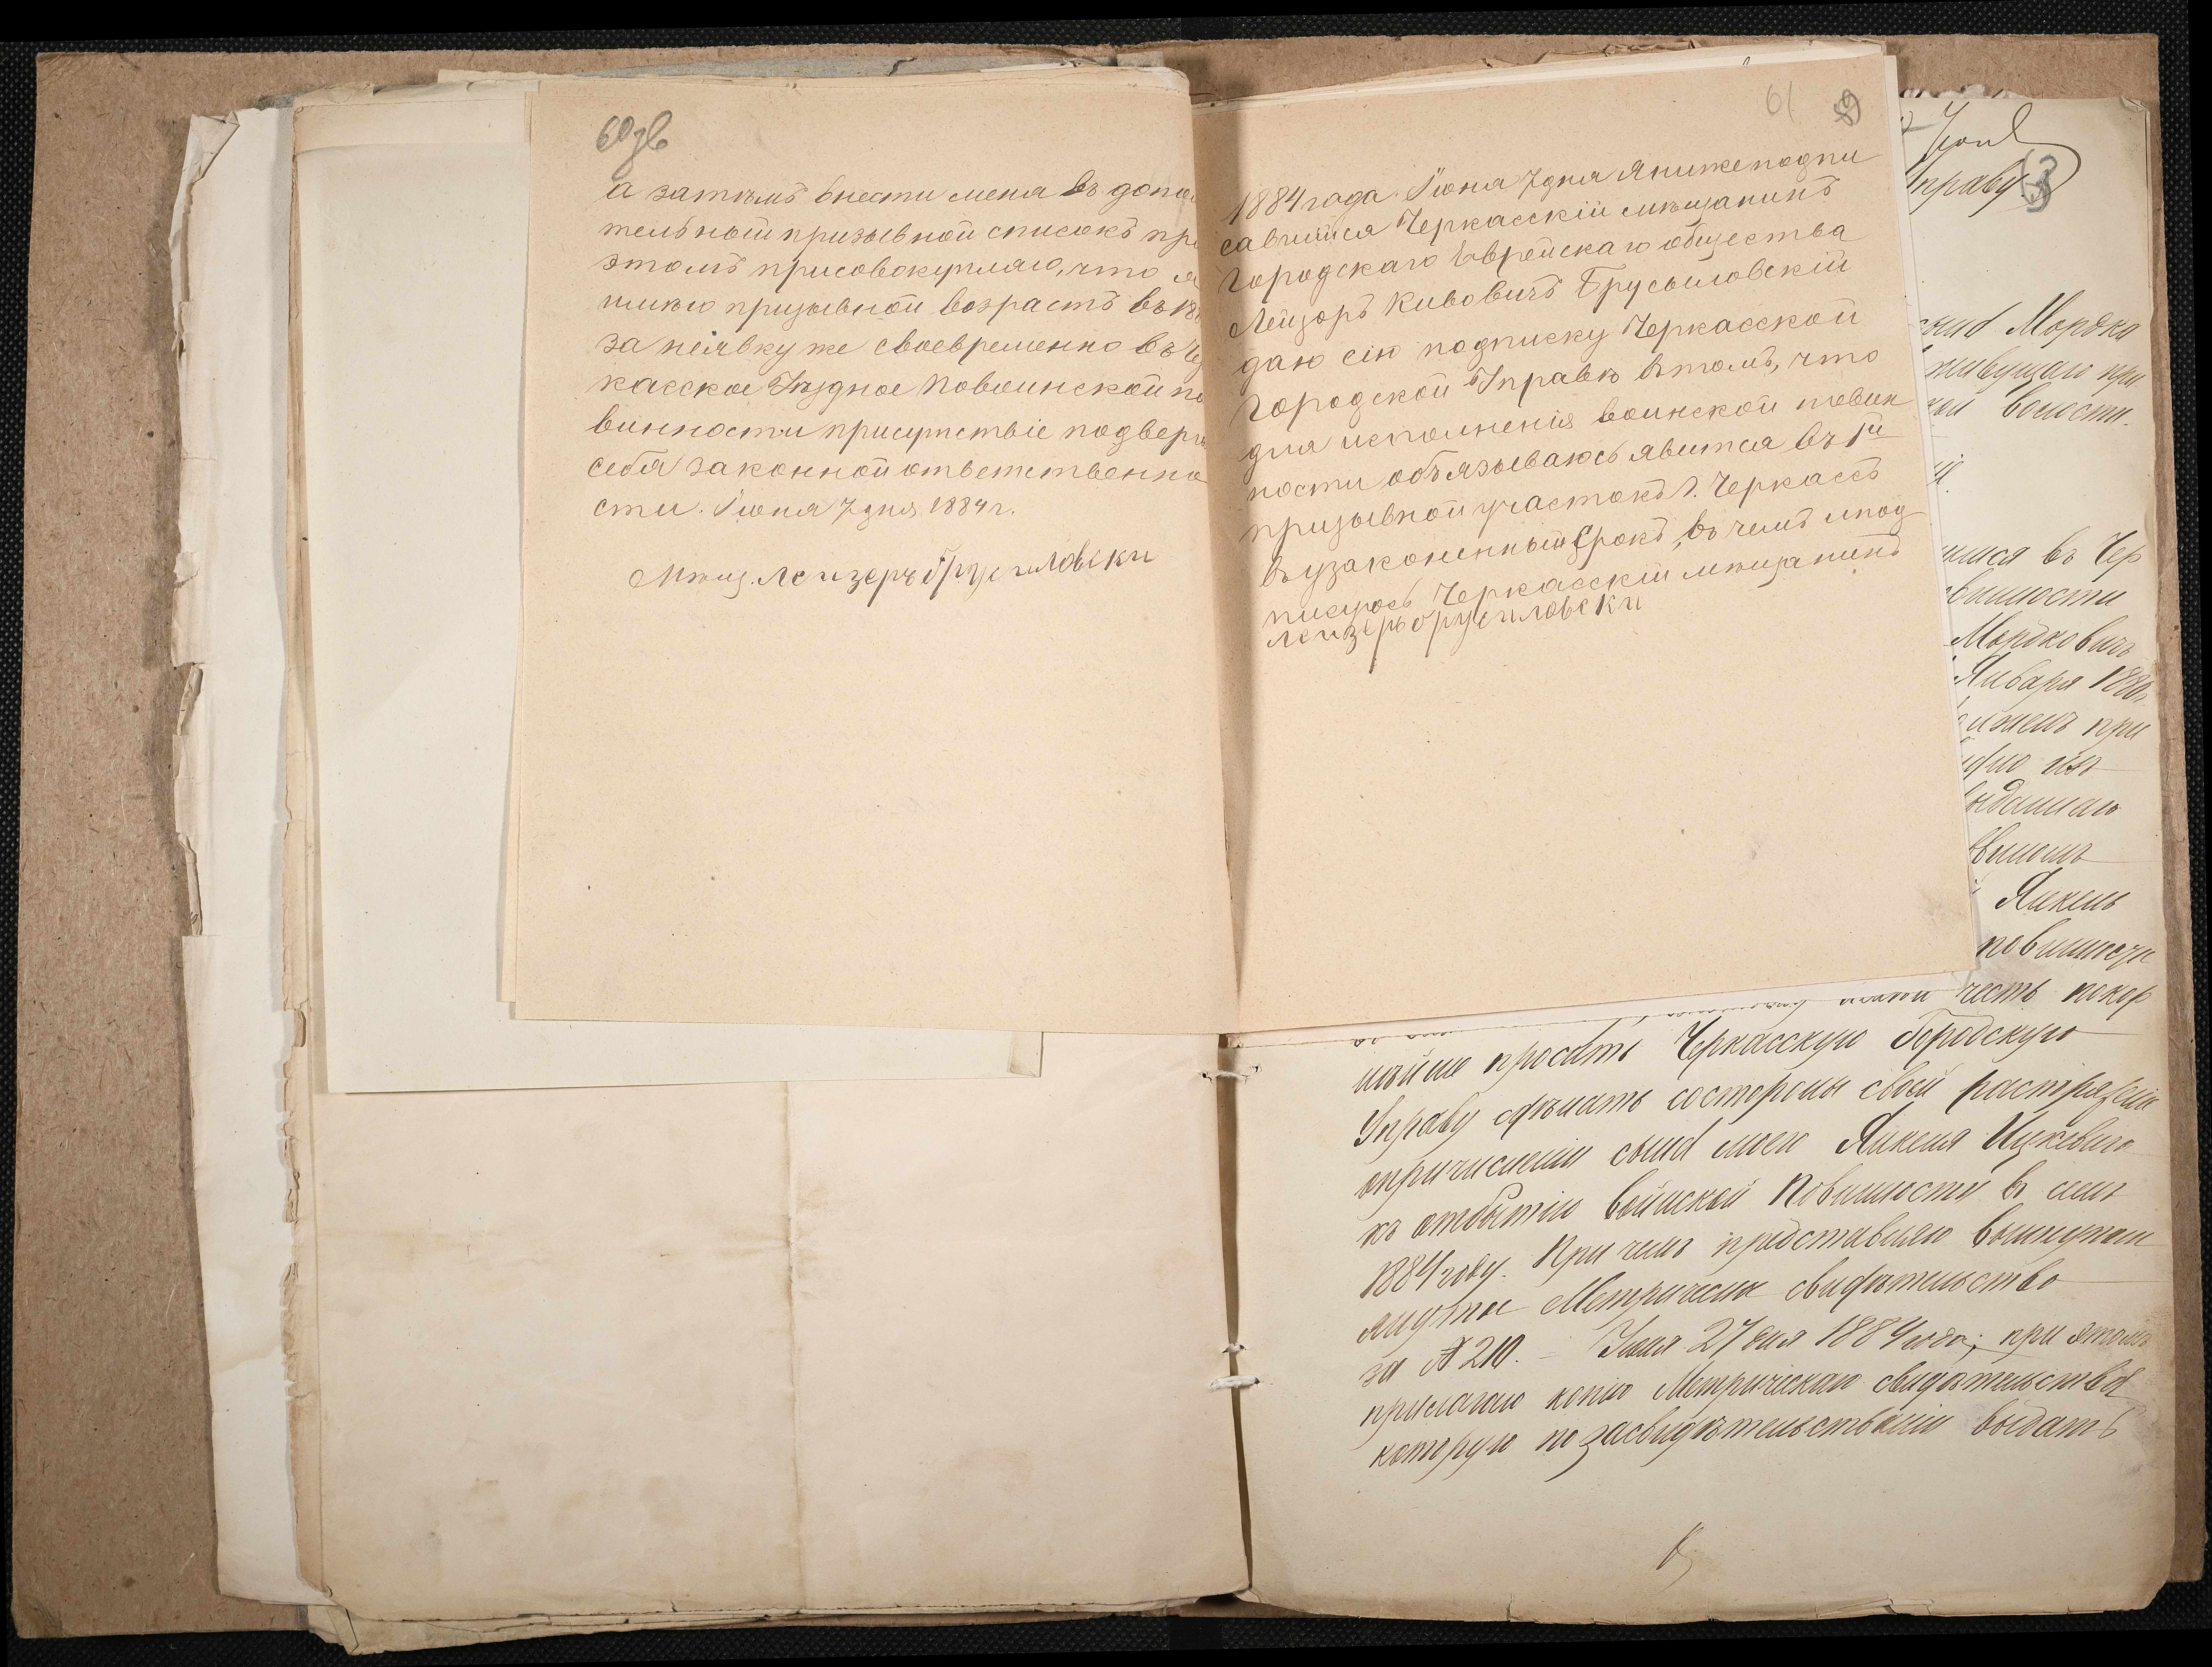 60 зв
а затѣмъ внести меня въ допол
тельный призывной списокъ при
этомъ присовокупляю, что я
имѣю призывной возрастъ въ 18
за неявку же своевременно въ Чер
касское Уѣздное Повоинской по
винности присутствіе подверга
себя законной ответственно
сти. Іюня 7 дня 1884 г.
Мѣщ. Леизеръ брусиловски
61
1884 года Іюня 7 дня Я нижеподпи
савшийся Черкасскій мѣщанинъ
Городскаго Еврейскаго общества
Лейзоръ Кивовичъ Брусыловскій
даю сію подписку Черкасской
Городской Управѣ втомъ, что
для исполненія воинской повин
ности объязываюсь явится въ 1й
призывной участокъ г. Черкассъ
въ узаконенный срокъ, въ чемъ ипод
писуюсь Черкасскій мѣщанинъ
леизеръ брусиловски
Управу
13
сына Мордка
живущаго при
кой волости.
шися въ Чер
Мордковичъ
Января 188
при
Янкель
повинности
честь покор
нѣйше просить Черкасскую Городскую
Управу сдѣлать состороны своей растряженіе
опричисленіи сына моего Янкеля Ицковича
къ отбытію воинской Повинности въ семъ
1884 году. При чемъ представляю
Метрическое свидѣтельство
за № 210. – Іюля 27 дня 1884 года; при этомъ
прилагаю копію Метрическаго свидѣтельства
которую по засвидѣтельствованіи выдать